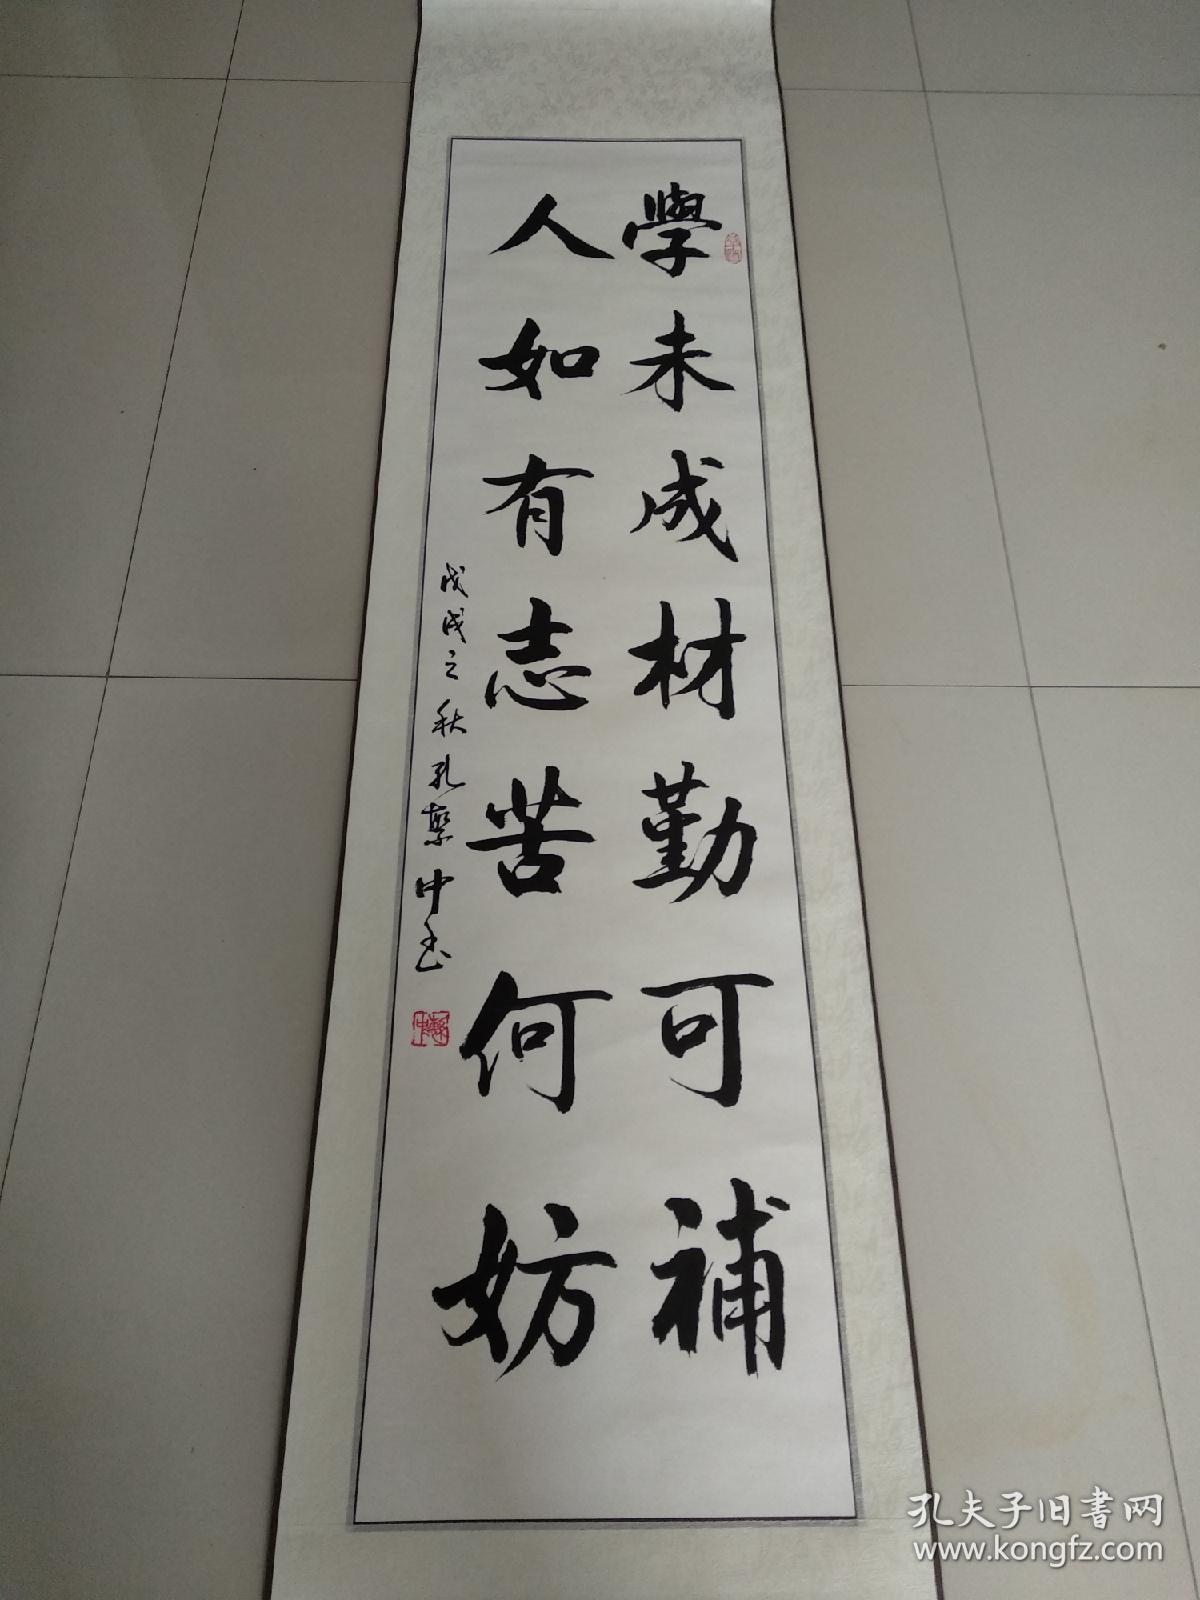 學未成材勤可補
人如有志苦何妨
戊戌之秋孔繁中书
孔夫子旧書网
www.kongfz.com